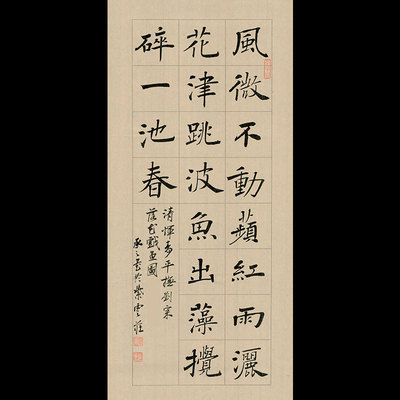 風微不動蘋紅雨灑
花津跳波魚出藻攪
碎一池春
清惲壽平撫劉寀
落花戲魚圖